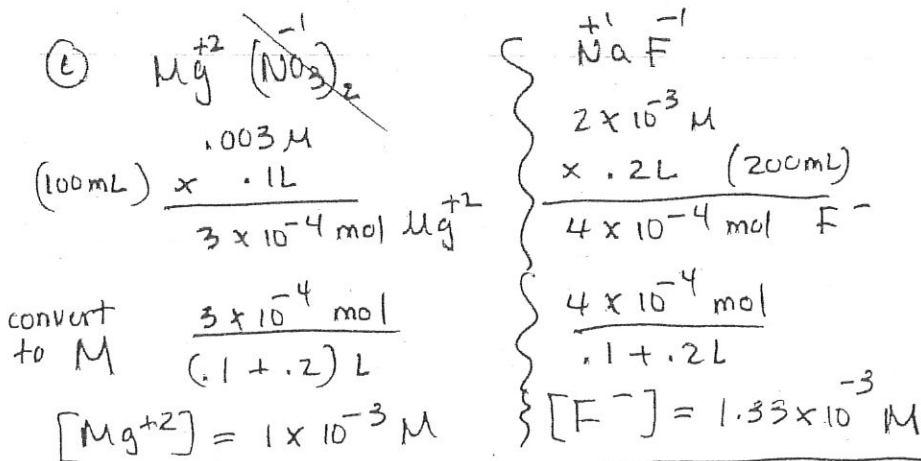 (c) Mg⁺² (NO₃)₂⁻¹
.003 M
(100 mL) x .1L
3 x 10⁻⁴ mol Mg⁺²
convert to M
3 x 10⁻⁴ mol
(.1 + .2) L
[Mg⁺²] = 1 x 10⁻³ M
Na⁺¹ F⁻¹
2 x 10⁻³ M
x .2L (200mL)
4 x 10⁻⁴ mol F⁻
4 x 10⁻⁴ mol
.1 + .2L
[F⁻] = 1.33 x 10⁻³ M